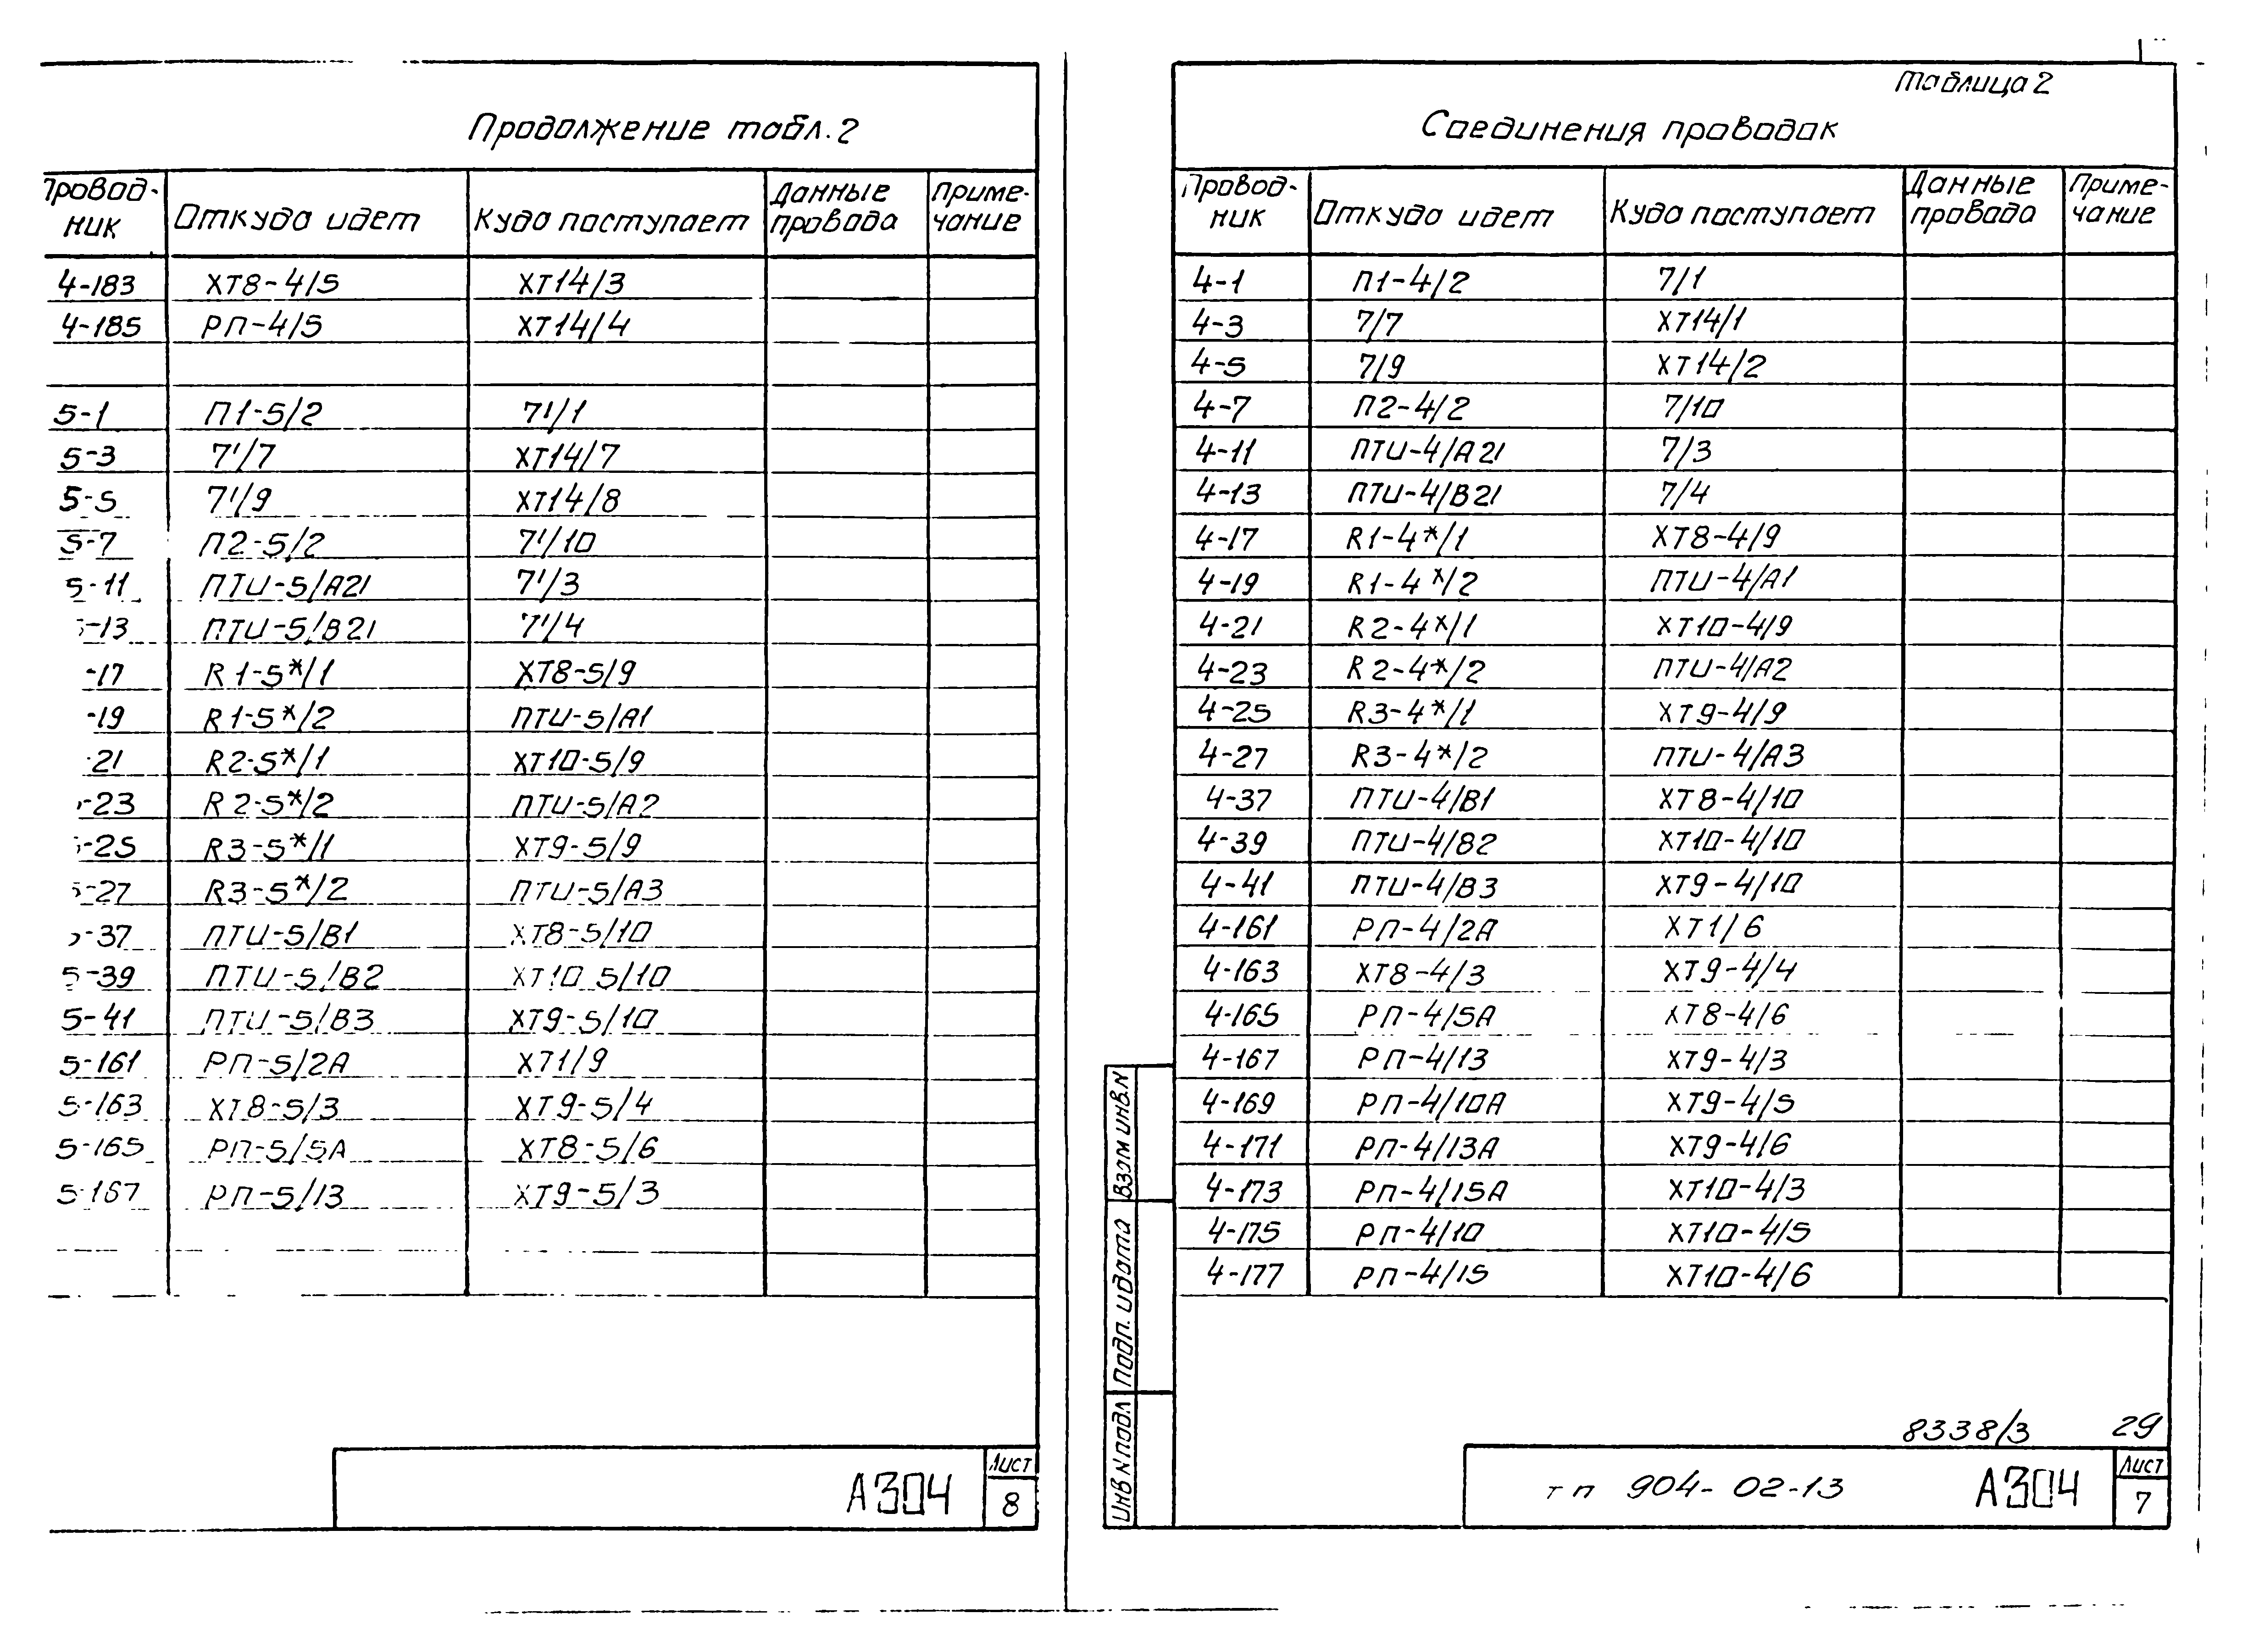 Продолжение табл. 2
Провод-ник Откуда идет Куда поступает Данные провода Приме-чание
4-183 ХТ8-4/5 ХТ14/3
4-185 РП-4/5 ХТ14/4
5-1 П1-5/2 7'/1
5-3 7'/7 ХТ14/7
5-5 7'/9 ХТ14/8
5-7 П2-5/2 7'/10
5-11 ПТИ-5/А21 7'/3
5-13 ПТИ-5/В21 7'/4
-17 R1-5*/1 ХТ8-5/9
-19 R1-5*/2 ПТИ-5/А1
-21 R2-5*/1 ХТ10-5/9
-23 R2-5*/2 ПТИ-5/А2
5-25 R3-5*/1 ХТ9-5/9
5-27 R3-5*/2 ПТИ-5/А3
5-37 ПТИ-5/В1 ХТ8-5/10
5-39 ПТИ-5/В2 ХТ10 5/10
5-41 ПТИ-5/В3 ХТ9-5/10
5-161 РП-5/2А ХТ1/9
5-163 ХТ8-5/3 ХТ9-5/4
5-165 РП-5/5А ХТ8-5/6
5-167 РП-5/13 ХТ9-5/3
А304
Лист
8
Таблица 2
Соединения проводок
Провод-ник Откуда идет Куда поступает Данные провода Приме-чание
4-1 П1-4/2 7/1
4-3 7/7 ХТ14/1
4-5 7/9 ХТ14/2
4-7 П2-4/2 7/10
4-11 ПТИ-4/А21 7/3
4-13 ПТИ-4/В21 7/4
4-17 R1-4*/1 ХТ8-4/9
4-19 R1-4*/2 ПТИ-4/А1
4-21 R2-4*/1 ХТ10-4/9
4-23 R2-4*/2 ПТИ-4/А2
4-25 R3-4*/1 ХТ9-4/9
4-27 R3-4*/2 ПТИ-4/А3
4-37 ПТИ-4/В1 ХТ8-4/10
4-39 ПТИ-4/В2 ХТ10-4/10
4-41 ПТИ-4/В3 ХТ9-4/10
4-161 РП-4/2А ХТ1/6
4-163 ХТ8-4/3 ХТ9-4/4
4-165 РП-4/5А ХТ8-4/6
4-167 РП-4/13 ХТ9-4/3
4-169 РП-4/10А ХТ9-4/5
4-171 РП-4/13А ХТ9-4/6
4-173 РП-4/15А ХТ10-4/3
4-175 РП-4/10 ХТ10-4/5
4-177 РП-4/15 ХТ10-4/6
Взам инв.N
Подп. и дата
Инв N подл
8338/3 29
тп 904-02-13 А304
Лист
7